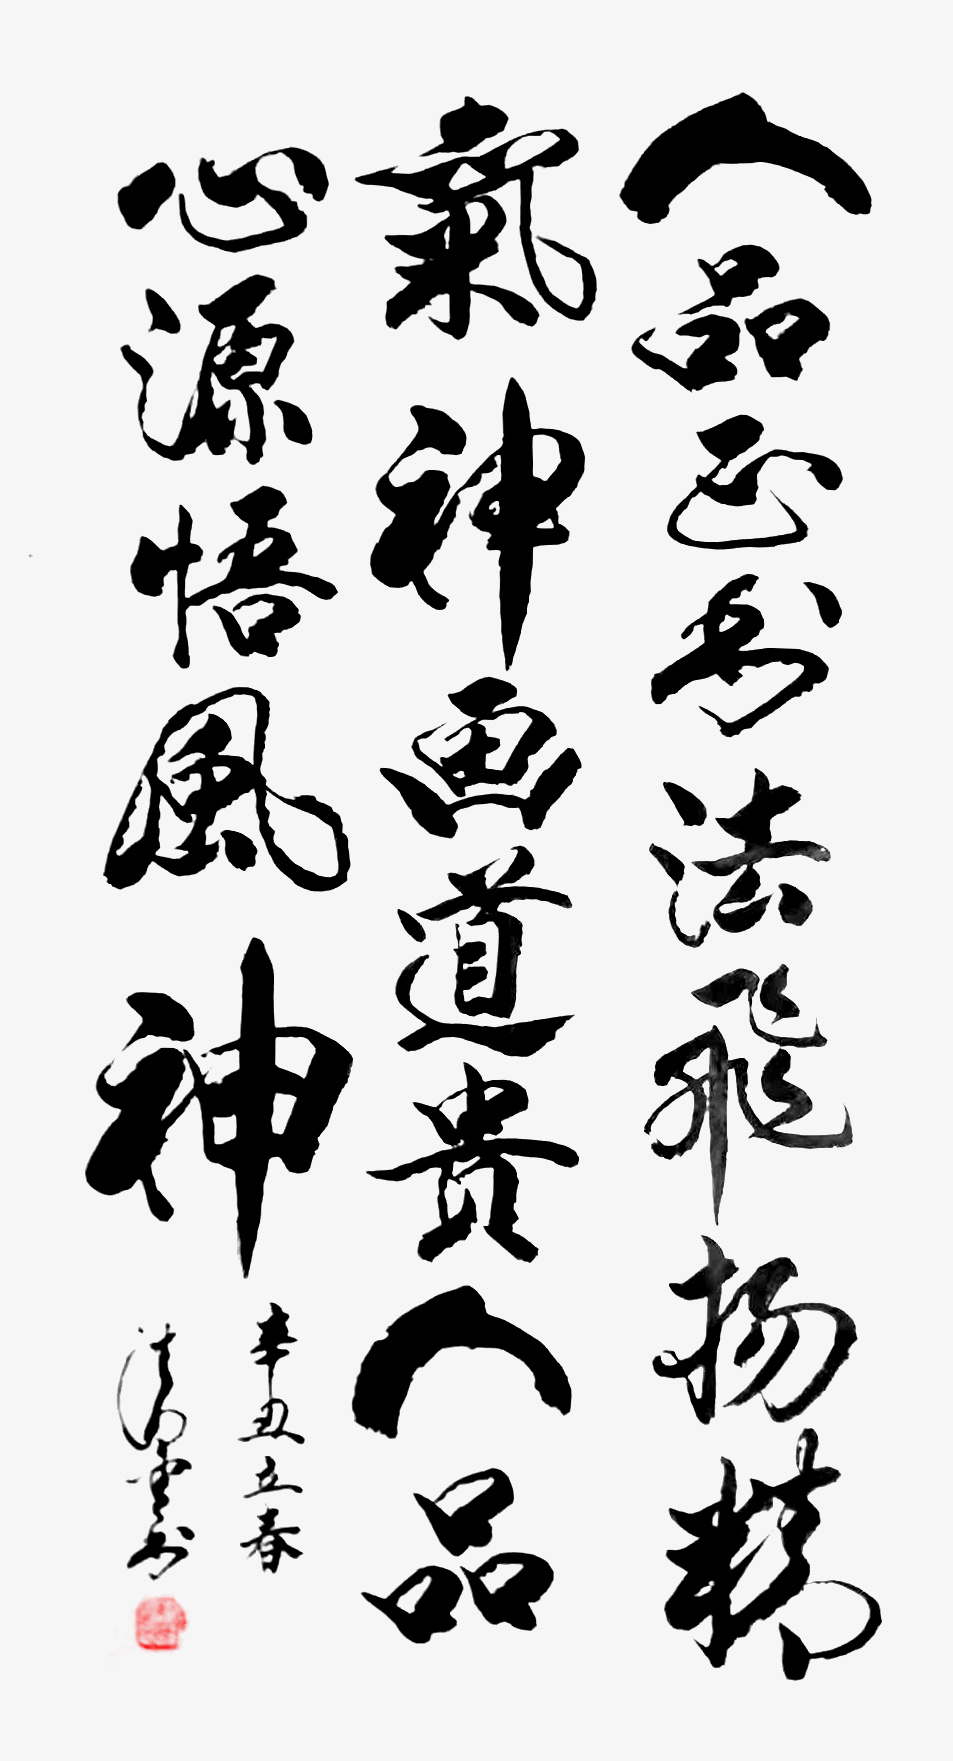 人品正书法飞扬精
氣神画道贵人品
心源悟風神
辛丑立春